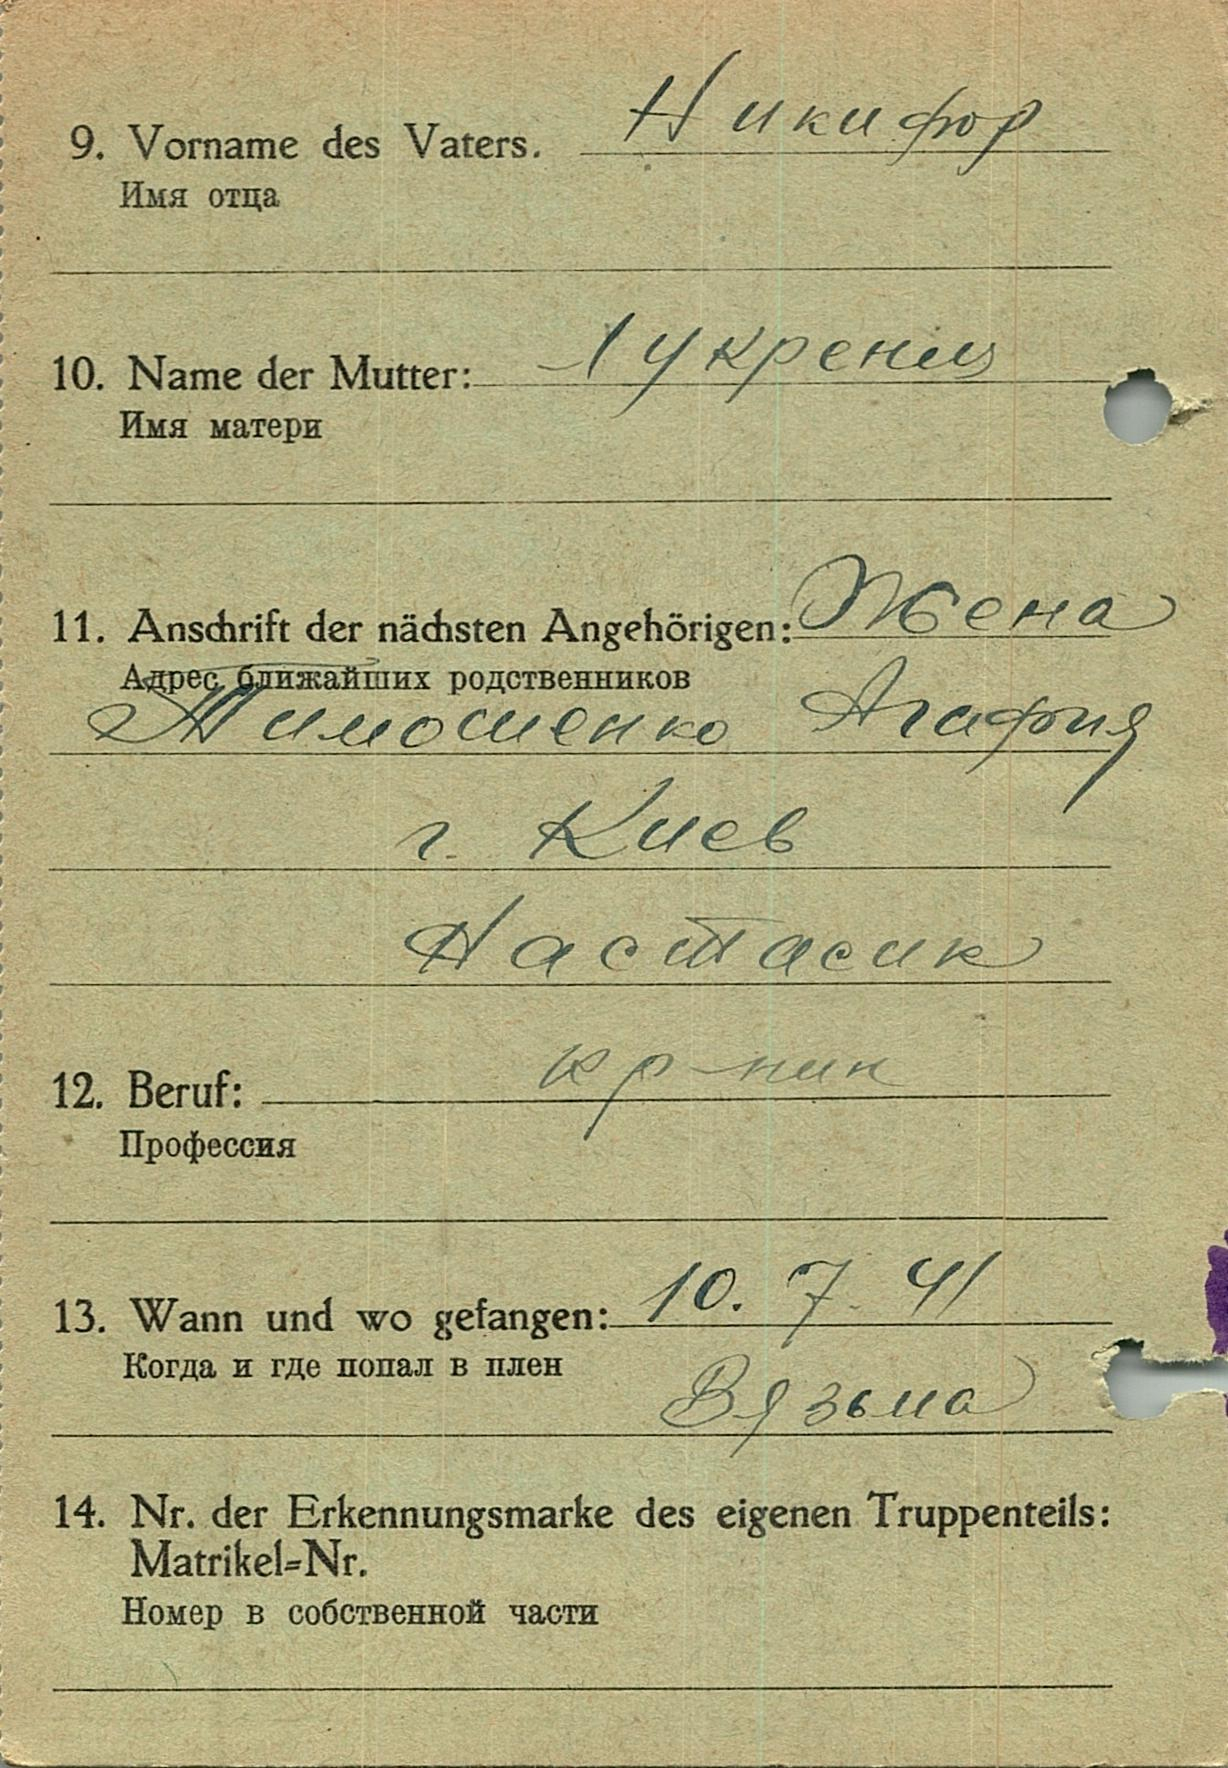 9. Vorname des Vaters. Никифор
Имя отца
10. Name der Mutter: Лукрения
Имя матери
11. Anschrift der nächsten Angehörigen: Жена
Адрес ближайших родственников
Тимошенко Агафия
г. Киев
Настасик
12. Beruf: кр-ник
Профессия
13. Wann und wo gefangen: 10. 7. 41
Когда и где попал в плен
Вязьма
14. Nr. der Erkennungsmarke des eigenen Truppenteils:
Matrikel=Nr.
Номер в собственной части